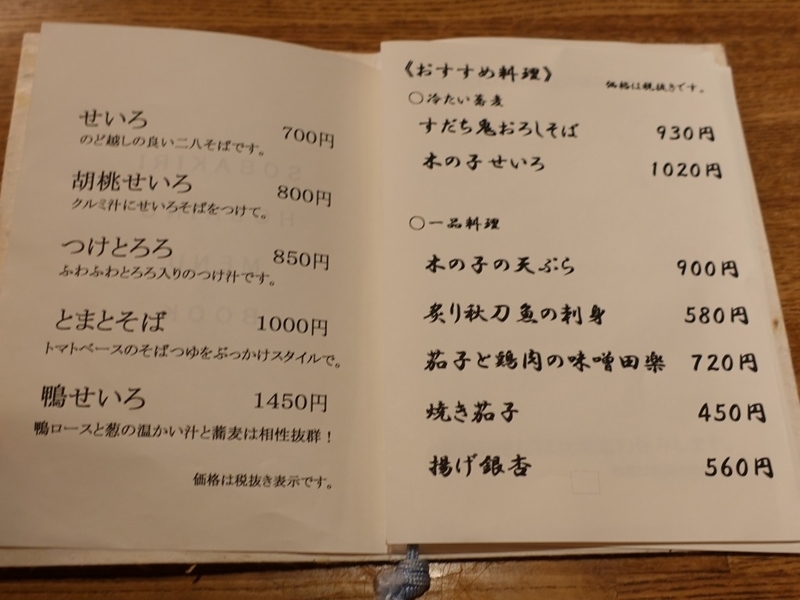 せいろ 700円
のど越しの良い二八そばです。
胡桃せいろ 800円
クルミ汁にせいろそばをつけて。
つけとろろ 850円
ふわふわとろろ入りのつけ汁です。
とまとそば 1000円
トマトベースのそばつゆをぶっかけスタイルで。
鴨せいろ 1450円
鴨ロースと葱の温かい汁と蕎麦は相性抜群！
価格は税抜き表示です。
《おすすめ料理》
価格は税抜きです。
〇冷たい蕎麦
すだち鬼おろしそば 930円
木の子せいろ 1020円
〇一品料理
木の子の天ぷら 900円
炙り秋刀魚の刺身 580円
茄子と鶏肉の味噌田楽 720円
焼き茄子 450円
揚げ銀杏 560円